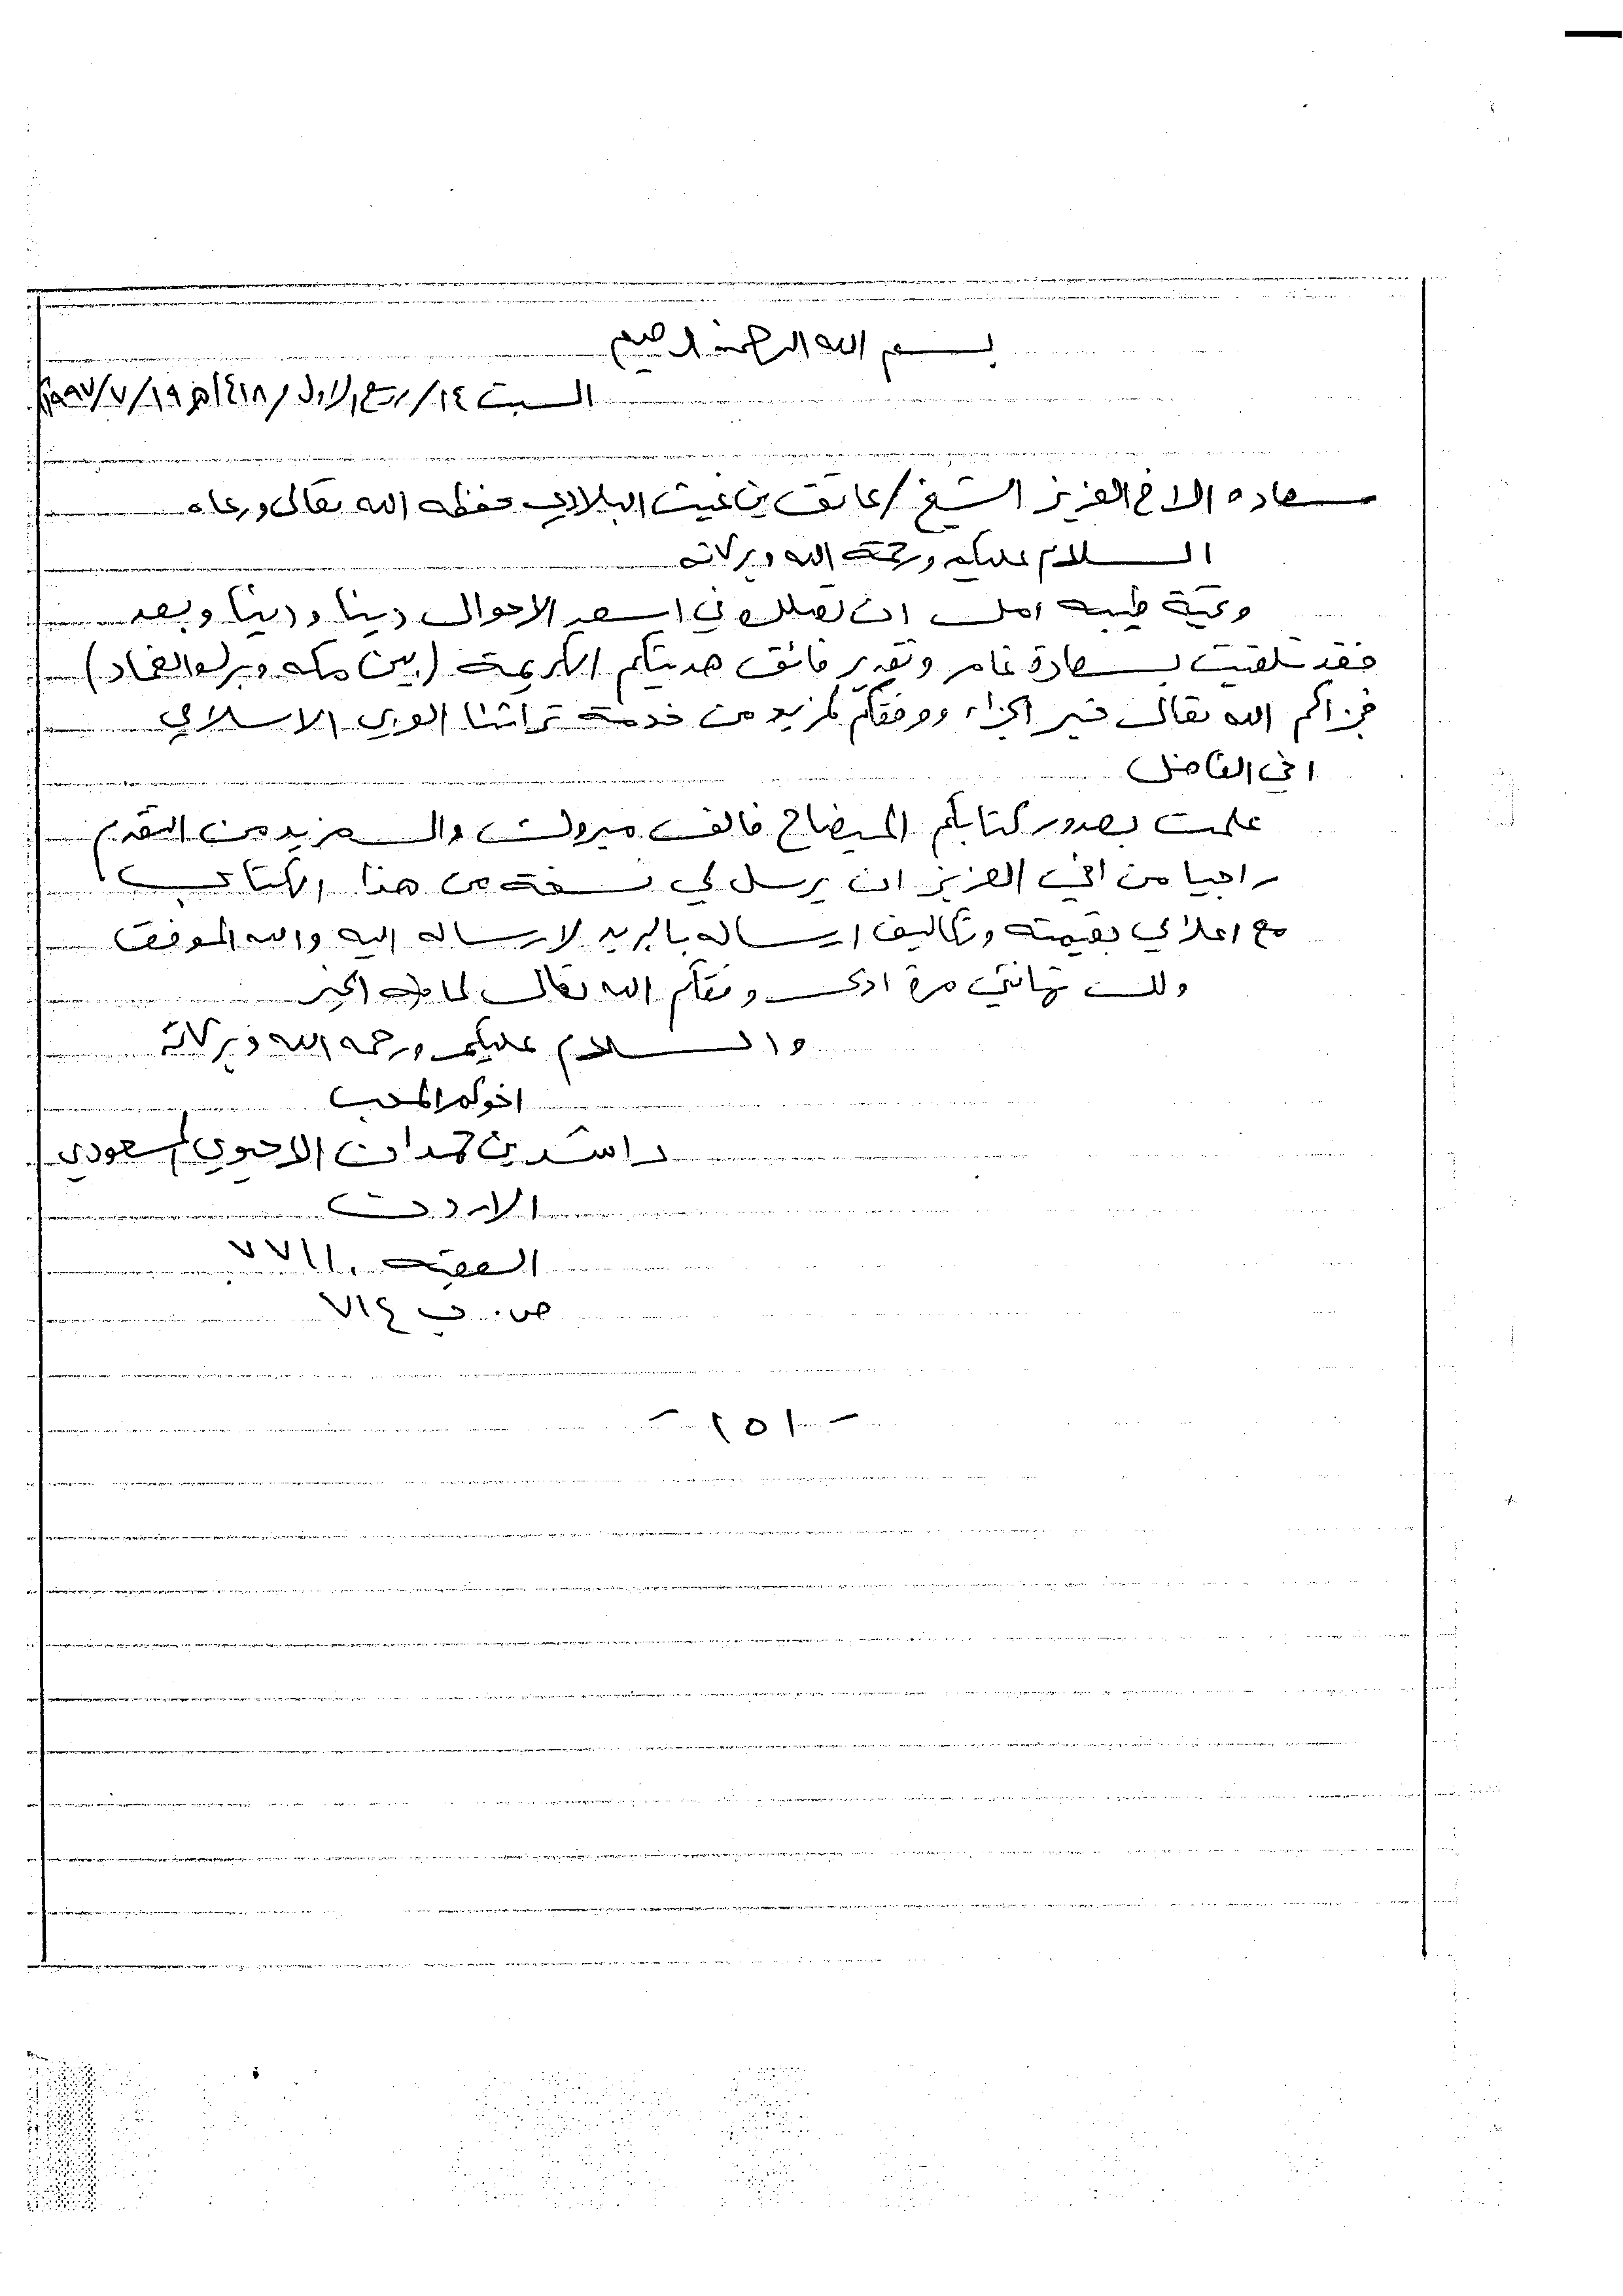 بسم الله الرحمن الرحيم
السبت ١٤/ربيع الاول/١٤١٨هـ ١٩٩٧/٧/١٩م
سعاده الاخ العزيز الشيخ/عاتق بن غيث البلادي حفظه الله تعالى ورعاه
السلام عليكم ورحمة الله وبركاته
وتحية طيبه امل ان تصلك في اسعد الاحوال دينا ودنيا وبعد
فقد تلقيت بسعادة غامر وتقدير فائق هديتكم الكريمة (بين مكه وبرك الغماد)
فجزاكم الله تعالى خير الجزاء ووفقكم لمزيد من خدمة تراثنا العربي الاسلامي
اخي الفاضل
علمت بصدور كتابكم الميضاح فالف مبروك والى مزيد من التقدم
راجيا من اخي العزيز ان يرسل لي نسخة من هذا الكتاب
مع اعلامي بقيمته وتكاليف ارساله بالبريد لارساله اليه والله الموفق
ولك تهانئي مرة اخرى وفقكم الله تعالى لما فيه الخير
والسلام عليكم ورحمه الله وبركاته
اخوكم المحب
راشد بن حمدان الاحيوي المسعودي
الاردن
العقبه ٧٧١١٠
ص. ب ٧١٤
- ٢٥١ -